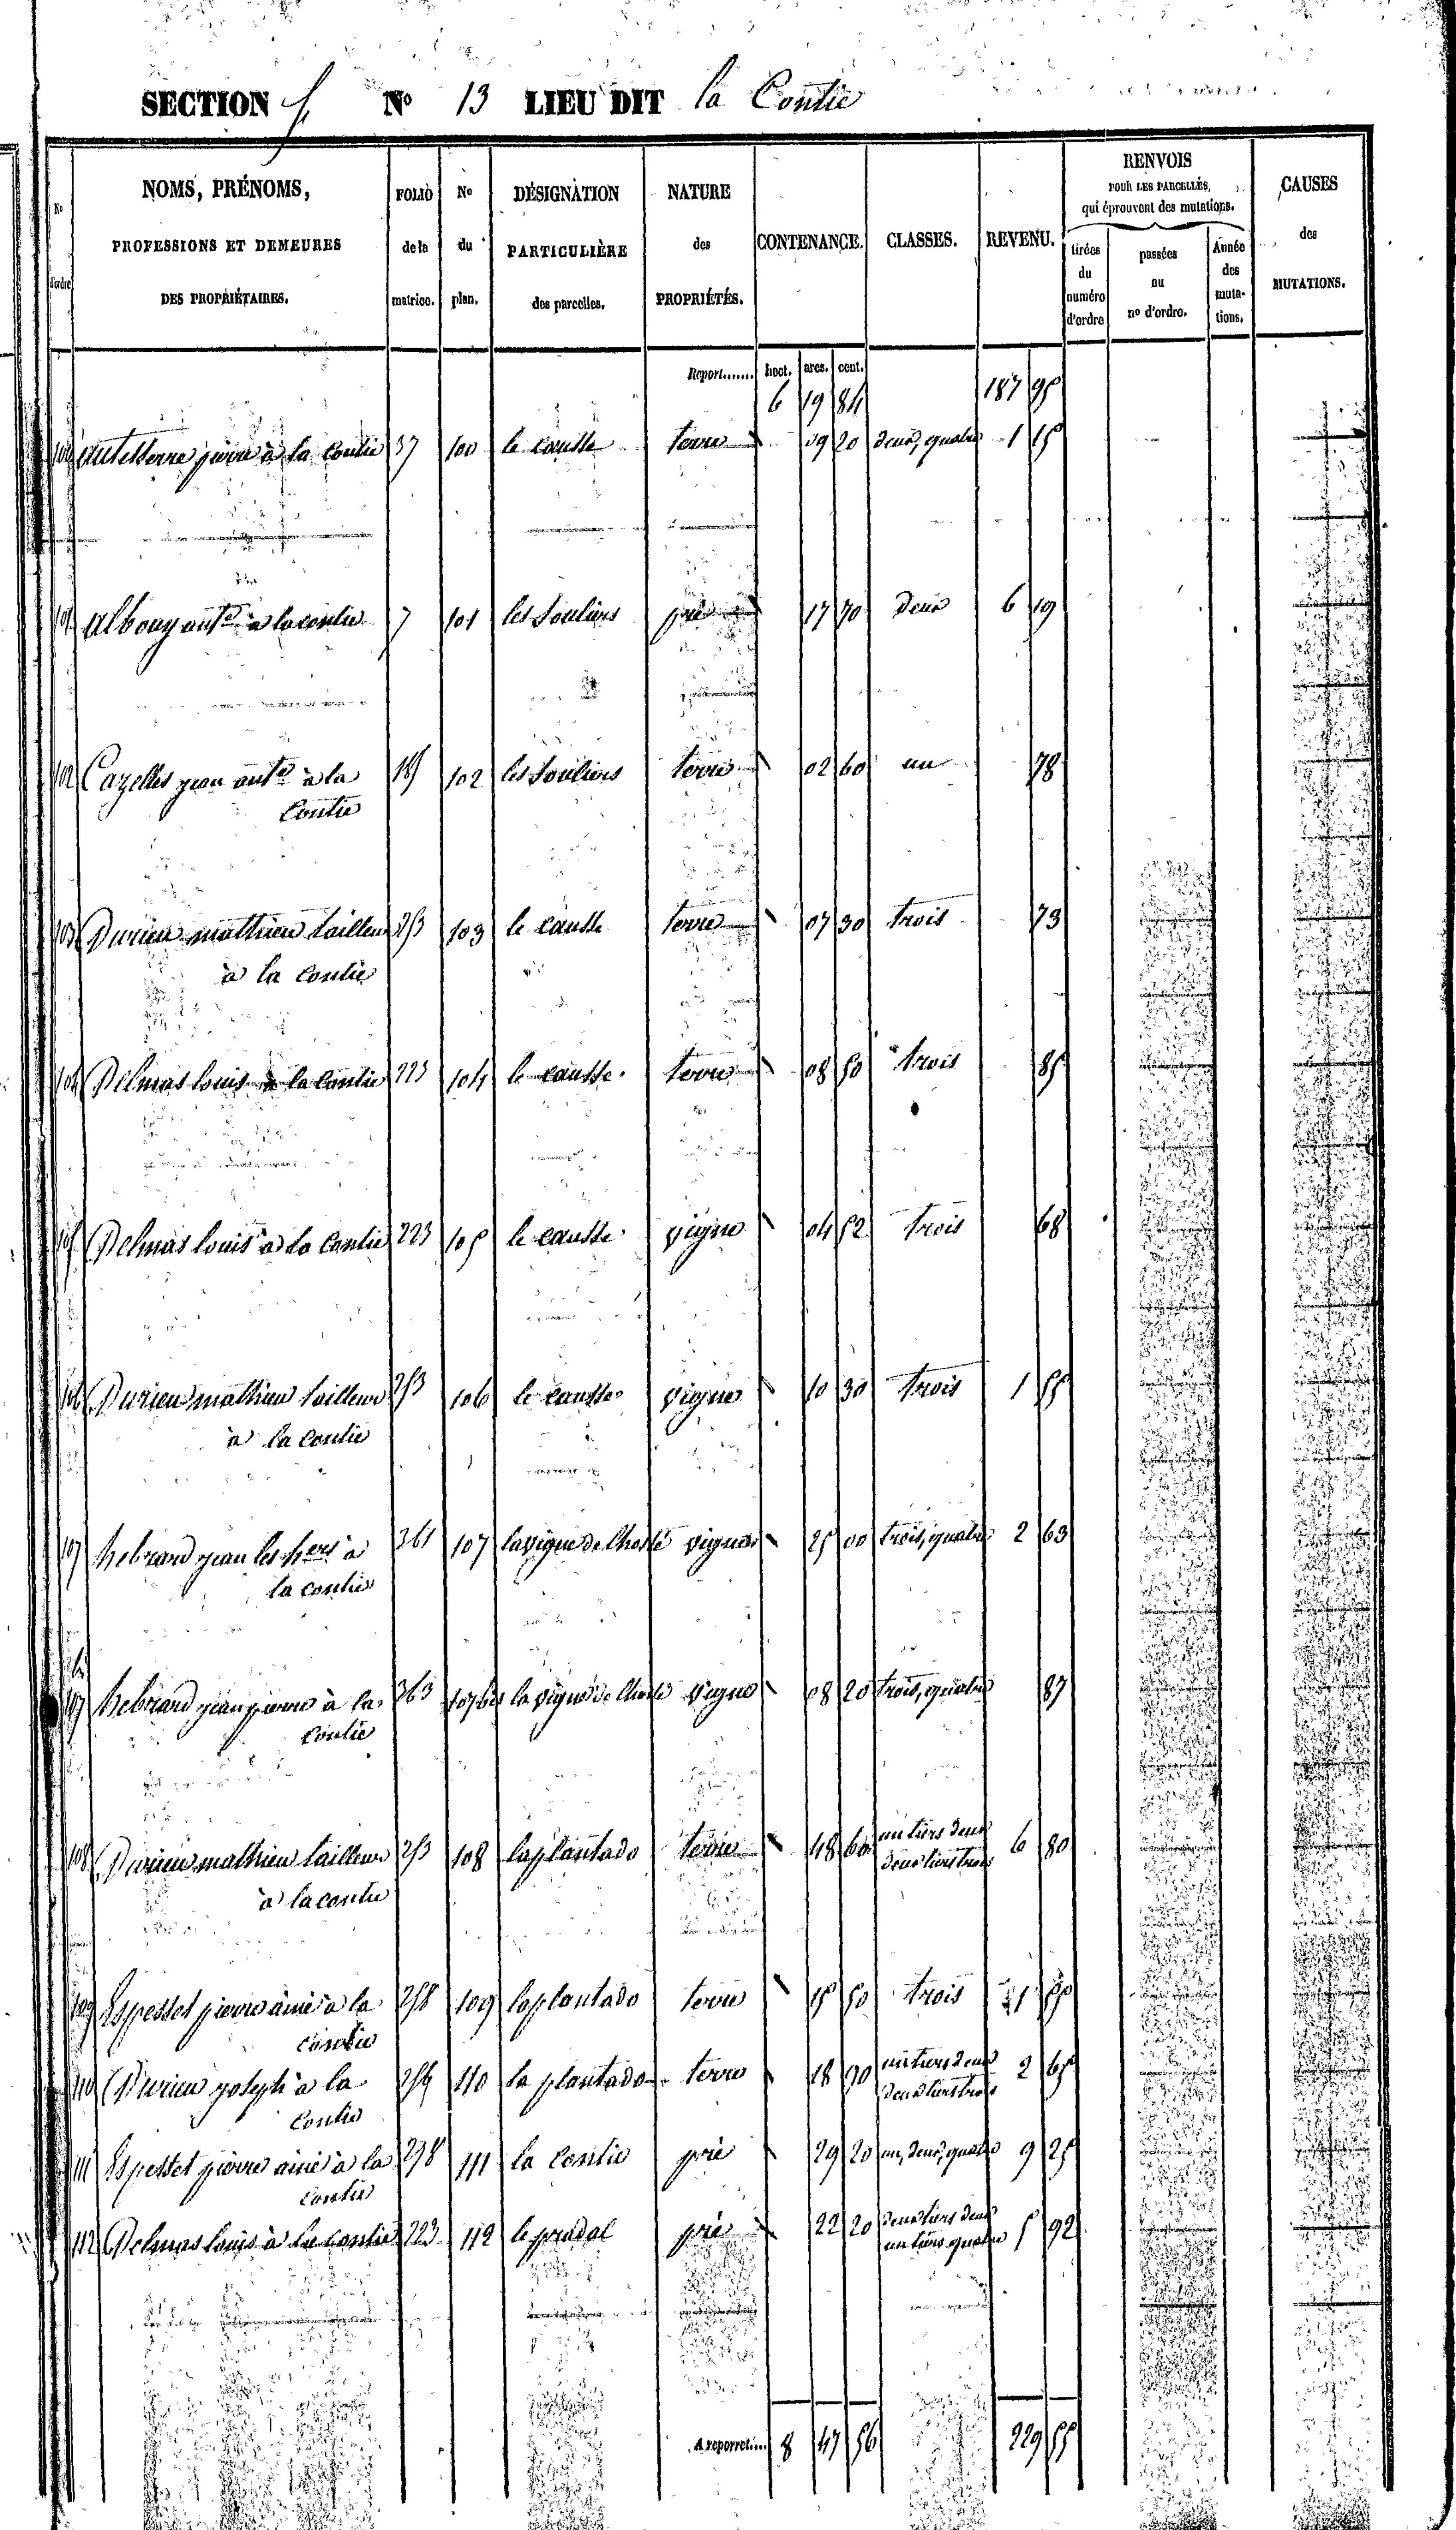 SECTION f N° 13 LIEU DIT la Contie
N° d'ordre NOMS, PRÉNOMS, PROFESSIONS ET DEMEURES DES PROPRIÉTAIRES. FOLIO de la matrice. N° du plan. DÉSIGNATION PARTICULIÈRE des parcelles. NATURE des PROPRIÉTÉS. CONTENANCE. CLASSES. REVENU. RENVOIS POUR LES PARCELLES, qui éprouvent des mutations. tirées du numéro d'ordre passées au n° d'ordre. Année des mutations. CAUSES des MUTATIONS.
Report....... hect. ares. cent.
6 19 84 187 95
100 pierre à la Contie 37 100 le causse terre 09 20 deux, quatre 1 15
101 Albouy ante à la contie 7 101 les Souliers pré 17 70 deux 6 19
102 Cazelles jean ante à la 185 102 les Souliers terre 02 60 un 78
Contie
103 Durieu mathieu tailleur 253 103 le causse terre 07 30 trois 73
à la Contie
104 Delmas louis à la Contie 223 104 le causse terre 08 50 trois 85
105 Delmas louis à la Contie 223 105 le causse vigne 04 52 trois 68
106 Durieu mathieu tailleur 253 106 le causse vigne 10 30 trois 1 55
à la Contie
107 hebrard jean les hers à 361 107 la vigne de vigne 25 00 trois, quatre 2 63
la contie
107 bis hebrard jean pierre à la 363 107 bis la vigne de vigne 08 20 trois, quatre 87
Contie
108 Durieu mathieu tailleur 253 108 laplantado terre 48 60 un tiers deux 6 80
à la contie deux tiers trois
109 Espesset pierre ainé à la 258 109 laplantado terre 15 50 trois 1 55
Contie
110 Durieu joseph à la 254 110 la plantado terre 18 90 un tiers deux 2 65
Contie deux tiers trois
111 Espesset pierre ainé à la 258 111 la Contie pré 29 20 un, deux, quatre 9 25
Contie
112 Delmas louis à la contie 223 112 le pradal pré 22 20 deux tiers deux 5 92
un tiers quatre
A reporter.... 8 47 56 229 55